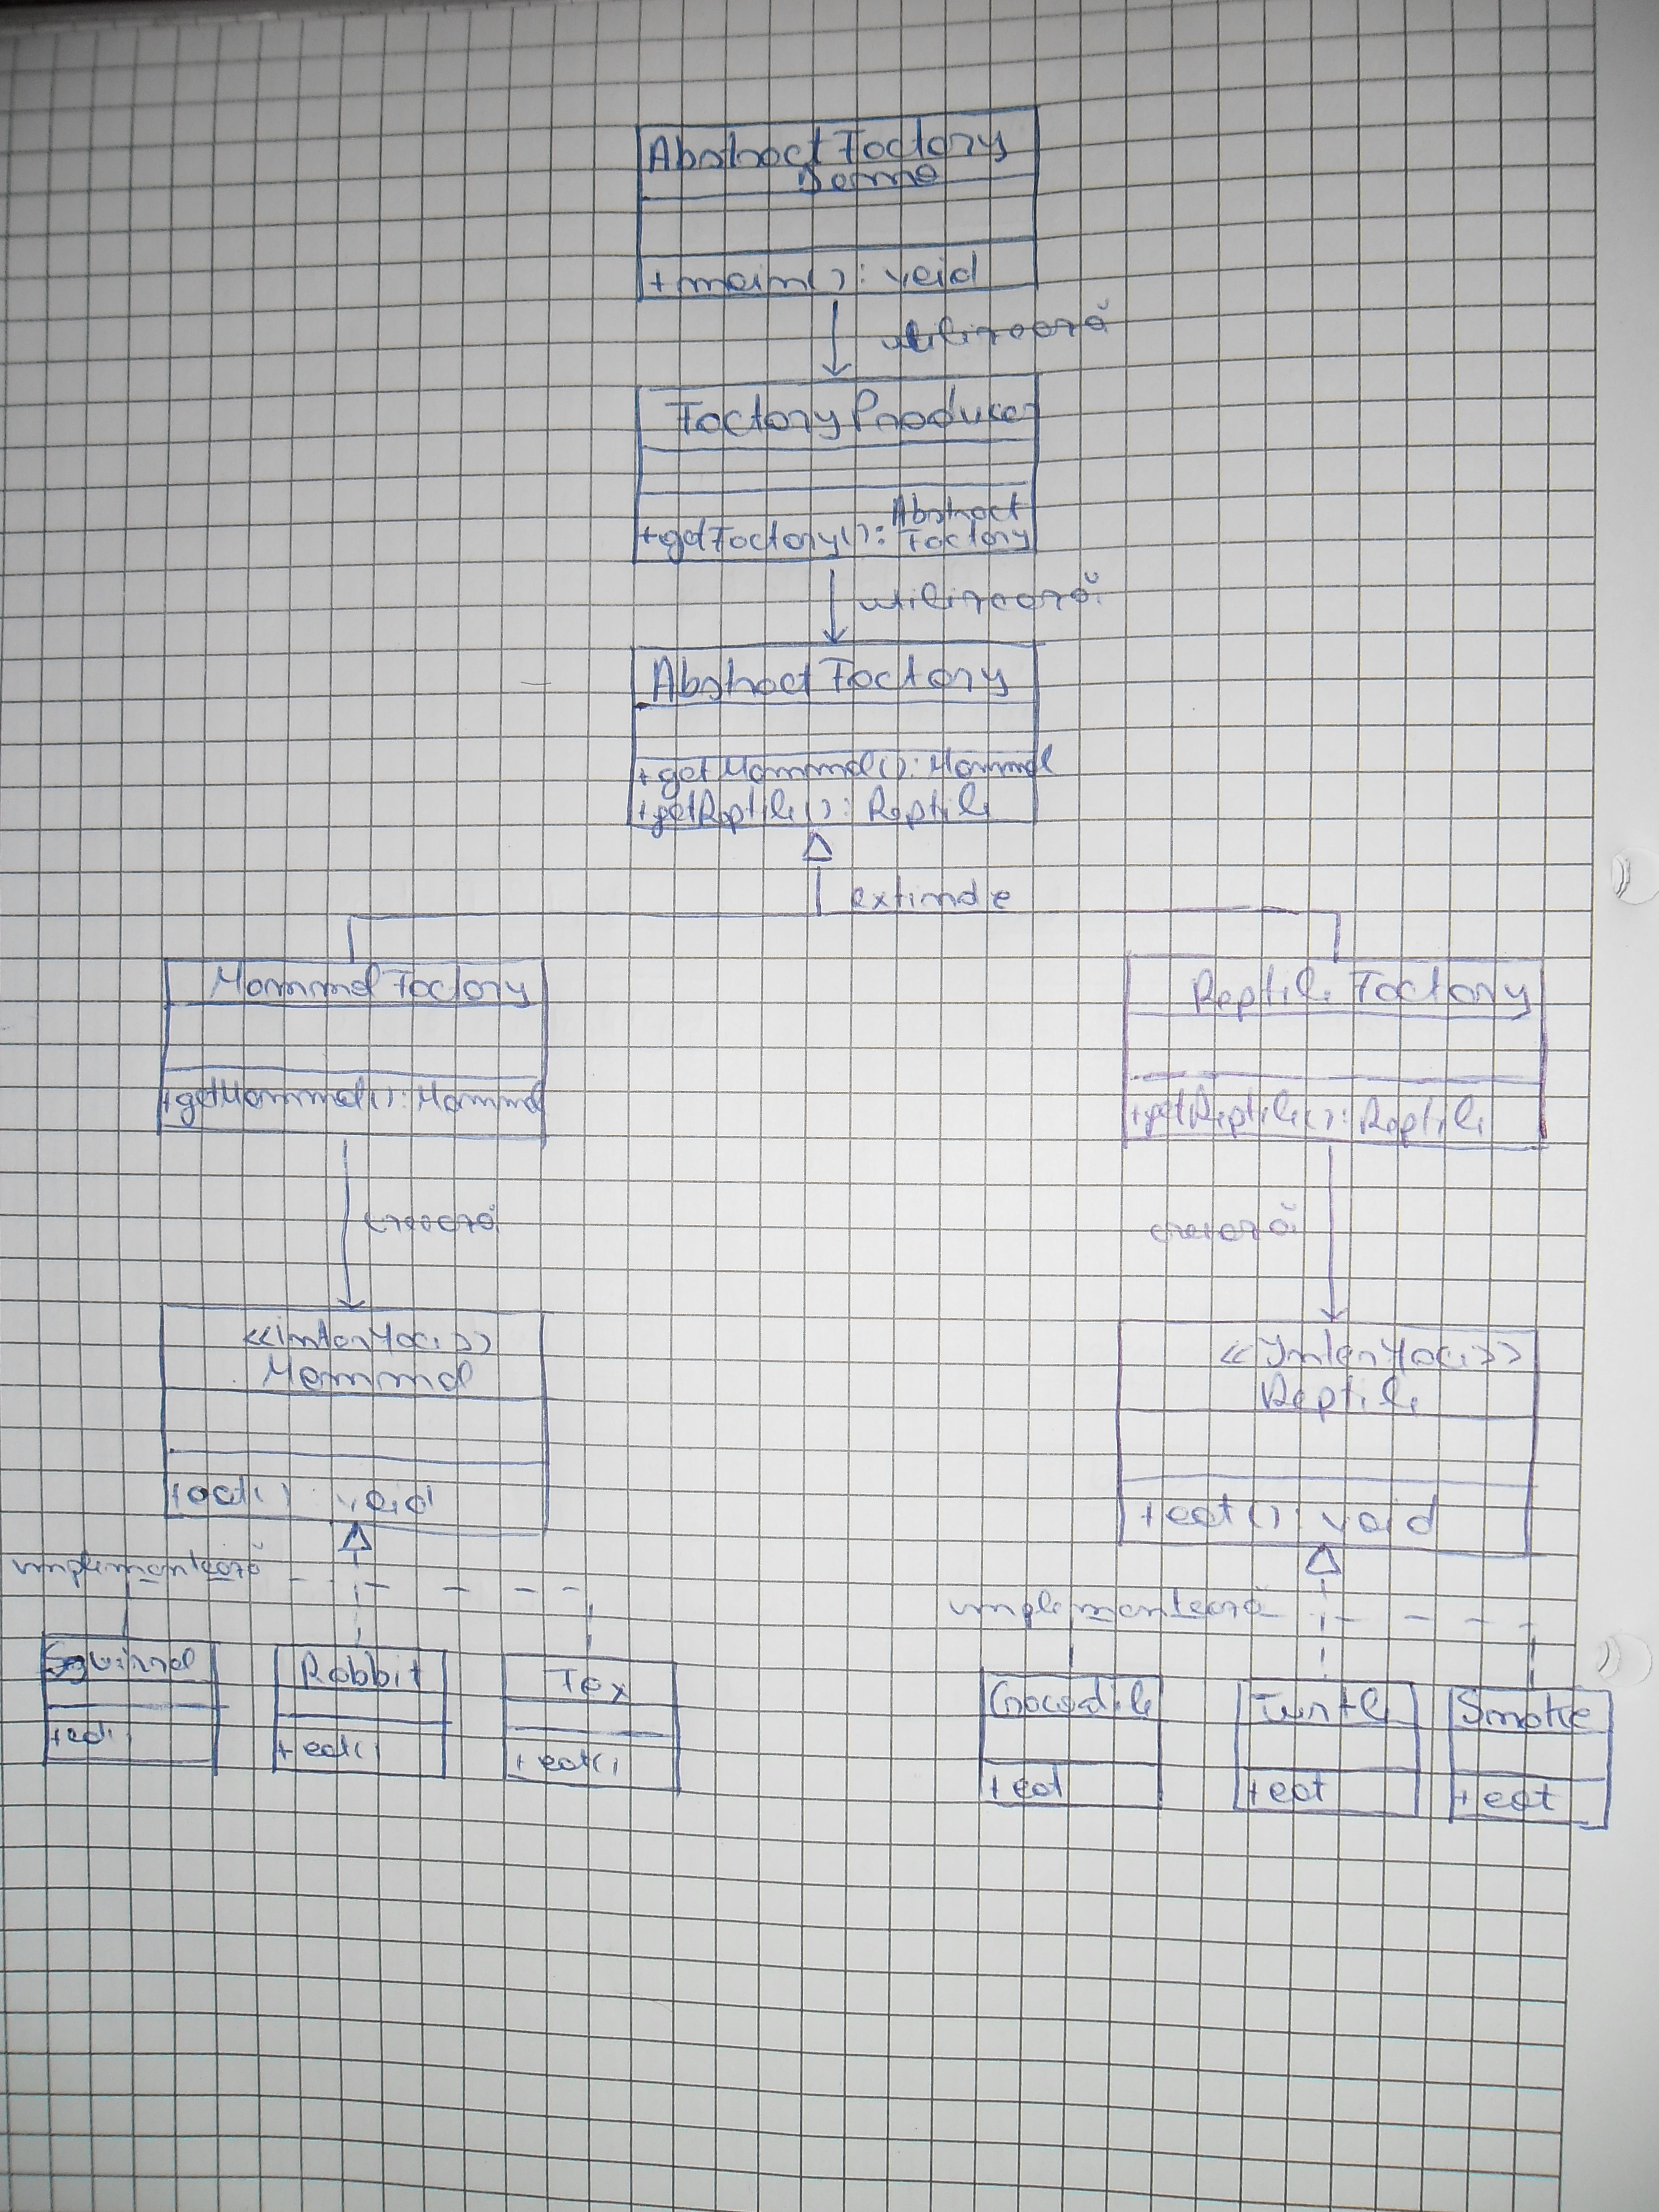 AbstractFactory
Demo
+main(): void
utilizează
FactoryProducer
+getFactory(): Abstract
Factory
utilizează
AbstractFactory
+getMammal(): Mammal
+getReptile(): Reptile
extinde
MammalFactory
ReptileFactory
+getMammal(): Mammal
+getReptile(): Reptile
creează
crează
<<interface>>
Mammal
<<Interface>>
Reptile
+eat() : void
+eat(): void
implementează
implementează
Squirrel
Rabbit
Fox
Crocodile
Turtle
Snake
+eat()
+eat()
+eat()
+eat
+eat
+eat